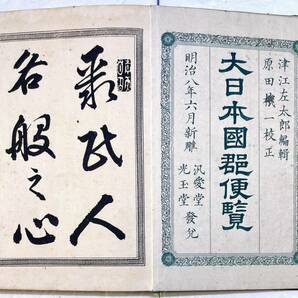 津江左太郎編輯
原田櫰一校正
大日本國郡便覧
明治八年六月新雕
汎愛堂
光玉堂 發兌
人
各般之心